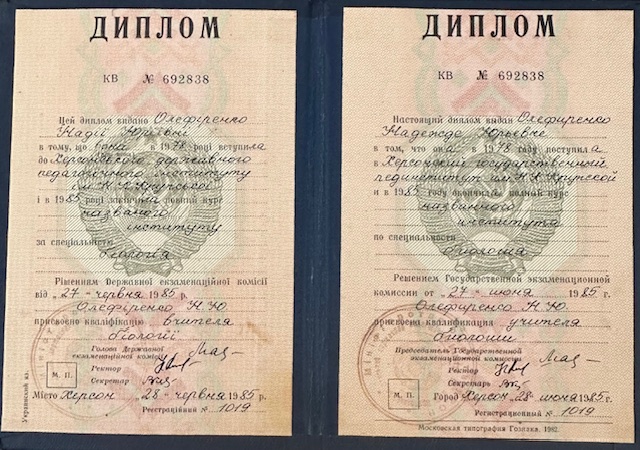 ДИПЛОМ
КВ № 692838
Цей диплом видано Олефіренко
Надії Юріївні
в тому, що вона в 1978 році вступила
до Херсонського державного
педагогічного інституту
ім. Н.К. Крупської
і в 1985 році закінчила повний курс
названого
інституту
за спеціальністю
біологія
Рішенням Державної екзаменаційної комісії
від „27" червня 1985 р.
Олефіренко Н.Ю
присвоєно кваліфікацію вчителя
біології
Голова Державної
екзаменаційної комісії
Ректор
Секретар
М. П.
Місто Херсон „28" червня 1985 р.
Реєстраційний № 1019
Украинский яз.
ДИПЛОМ
КВ № 692838
Настоящий диплом выдан Олефиренко
Надежде Юрьевне
в том, что она в 1978 году поступила
в Херсонский государственный
пединститут им. Н.К. Крупской
и в 1985 году окончила полный курс
названного
института
по специальности
биология
Решением Государственной экзаменационной
комиссии от „27" июня 1985 г.
Олефиренко Н.Ю
присвоена квалификация учителя
биологии
Председатель Государственной
экзаменационной комиссии
Ректор
Секретарь
М. П.
Город Херсон „28" июня 1985 г.
Регистрационный № 1019
Московская типография Гознака. 1982.